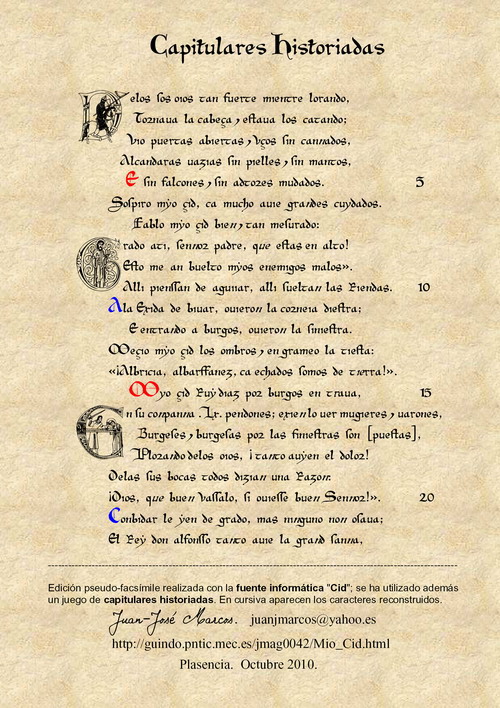 Capitulares Historiadas
Delos sos oios tan fuerte mientre lorando,
Tornaua la cabeça, estaua los catando;
Vio puertas abiertas, vços sin cannados,
Alcandaras uazias sin pielles, sin mantos,
E sin falcones, sin adtores mudados. 5
Sospiro myo çid, ca mucho auie grandes cuydados.
Fablo myo çid bien, tan mesurado:
Grado ati, sennor padre, que estas en alto!
Esto me an buelto myos enemigos malos».
Alli pienssan de aguiiar, alli sueltan las Riendas. 10
Ala Exida de biuar, ouieron la corneia diestra;
E entrando a burgos, ouieron la siniestra.
Meçio myo çid los ombros, engrameo la tiesta:
«¡Albricia, albarffanez, ca echados somos de tierra!».
Myo çid Ruy diaz por burgos en traua, 15
En su conpanna .Lx. pendones; exien lo uer mugieres, uarones,
Burgeses, burgesas por las finiestras son [puestas],
Plorando delos oios, ¡tanto auyen el dolor!
Delas sus bocas todos dizian una Razon:
¡Dios, que buen vassalo, si ouiesse buen Sennor!». 20
Conbidar le yen de grado, mas ninguno non osaua;
El Rey don alfonsso tanto auie la grand sanna,
Edición pseudo-facsímile realizada con la fuente informática "Cid"; se ha utilizado además
un juego de capitulares historiadas. En cursiva aparecen los caracteres reconstruidos.
Juan-José Marcos. juanjmarcos@yahoo.es
http://guindo.pntic.mec.es/jmag0042/Mio_Cid.html
Plasencia. Octubre 2010.